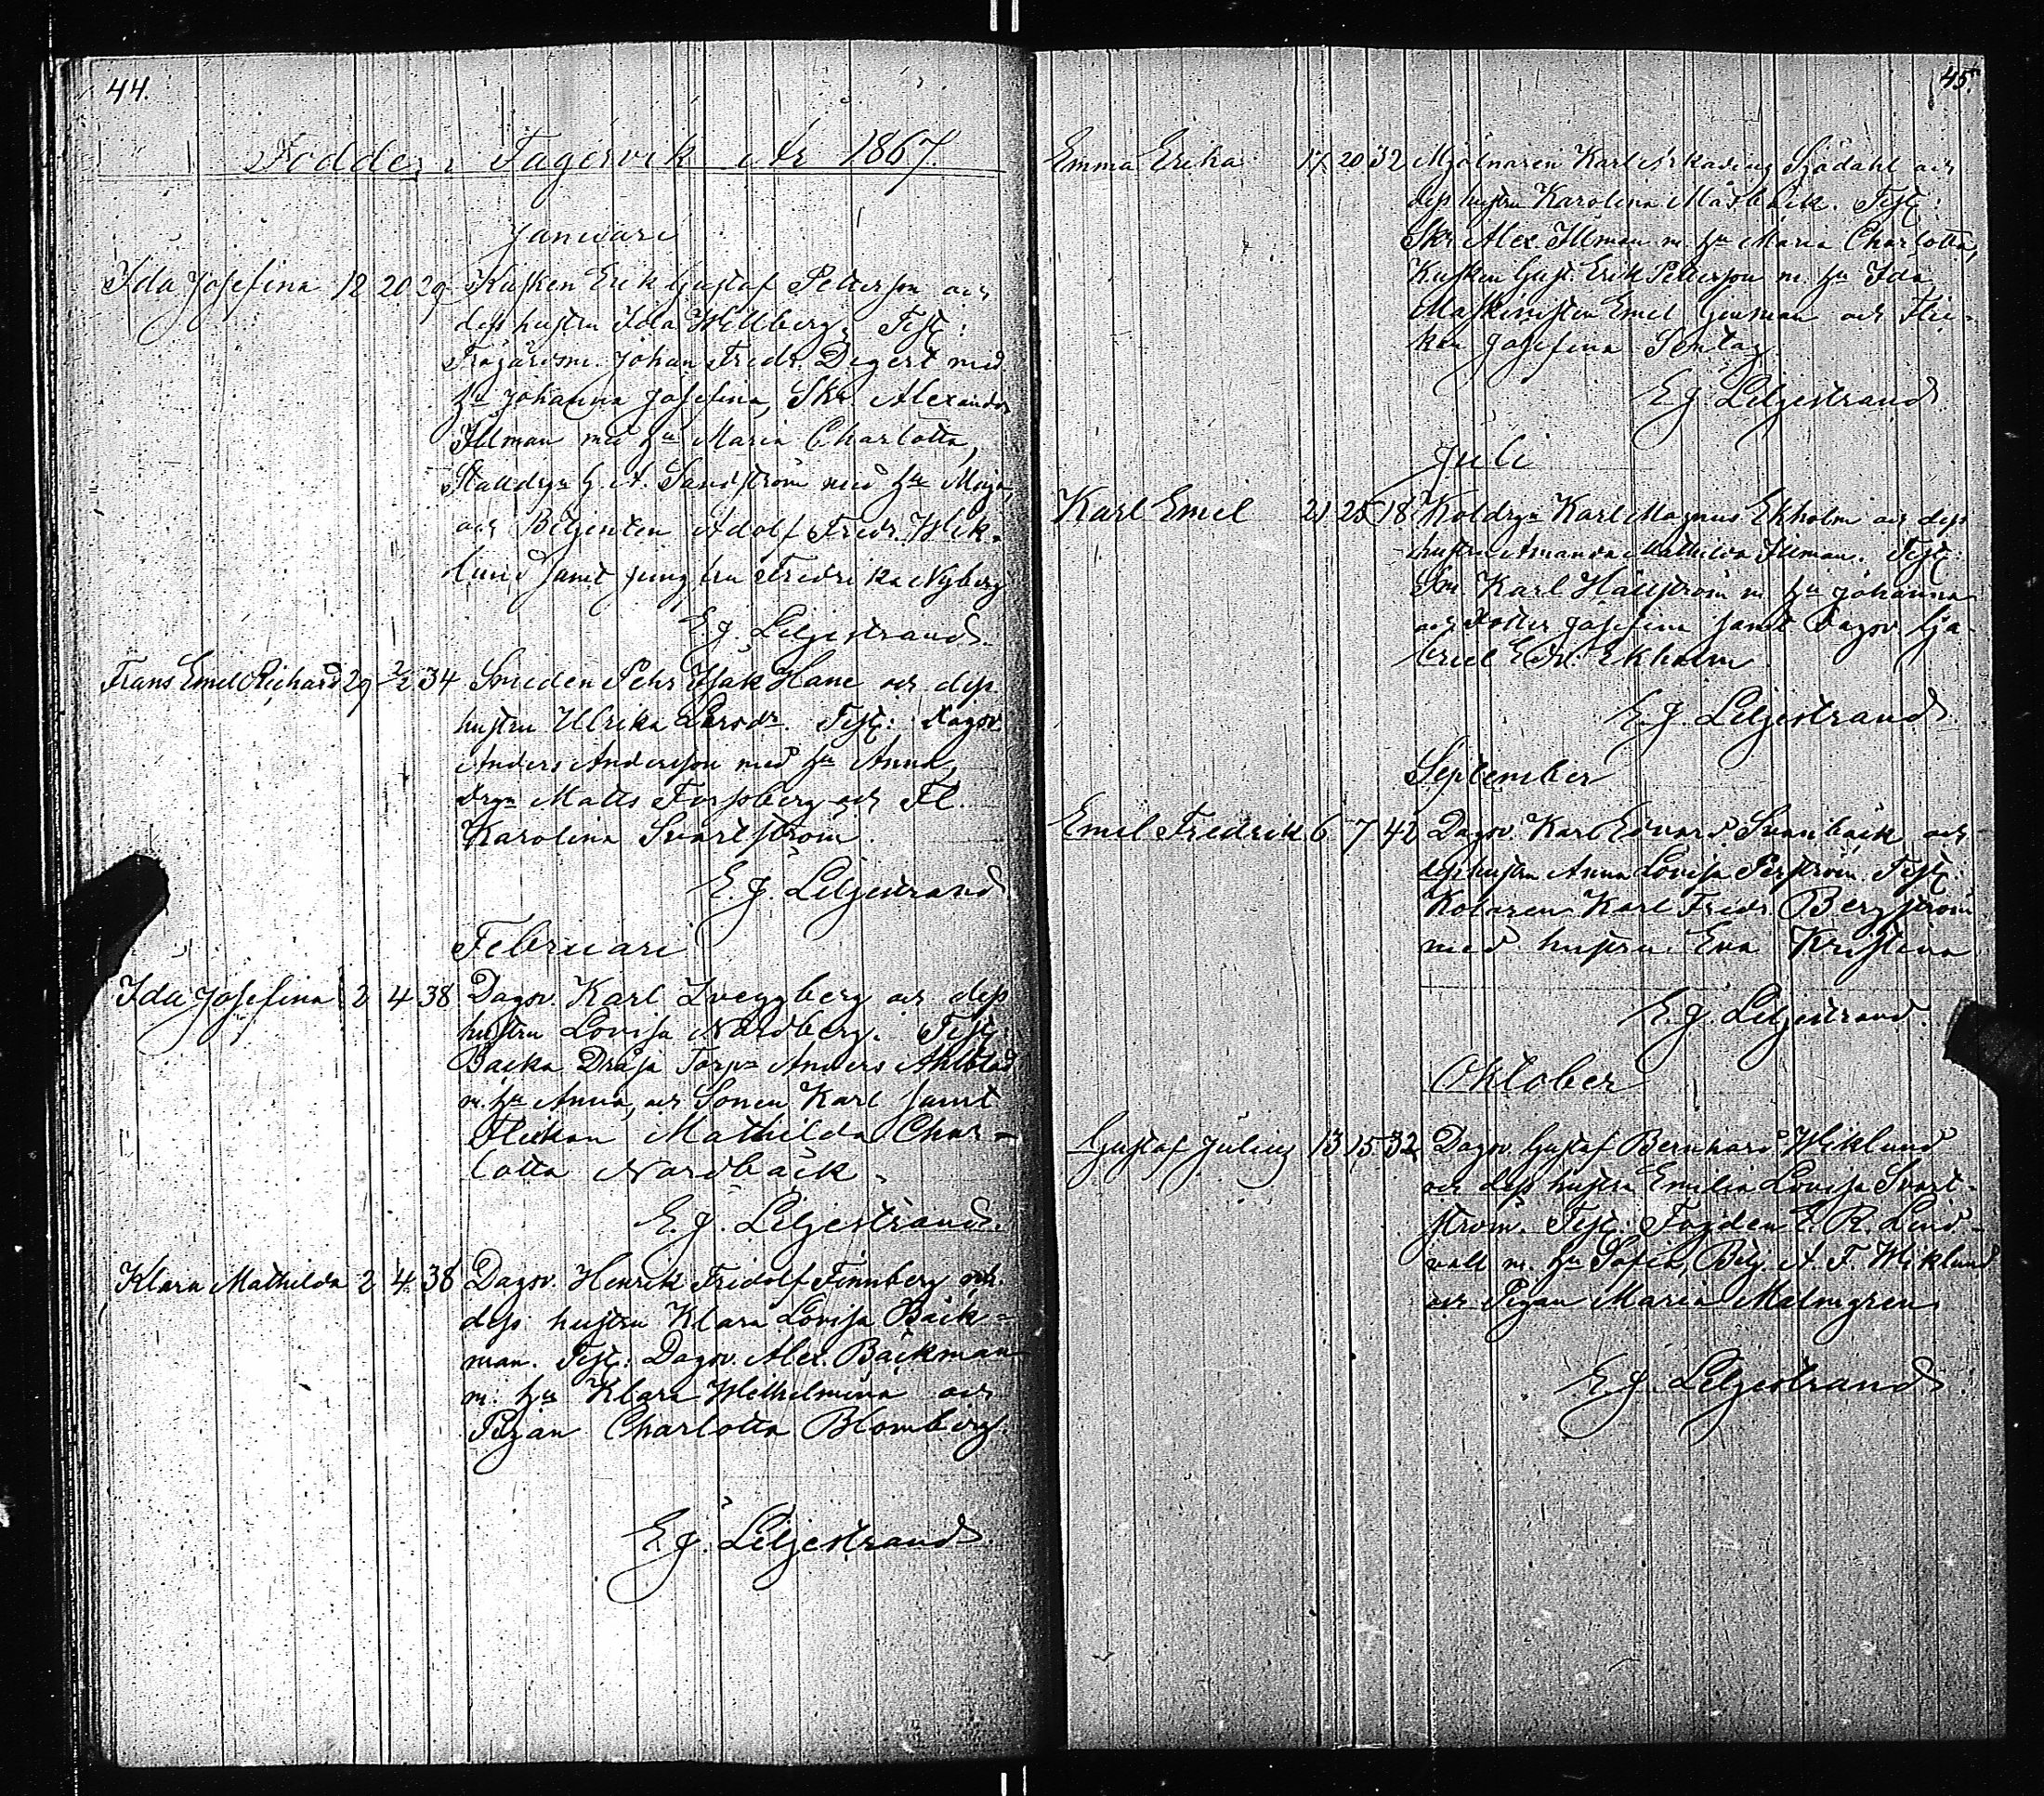 44.
Födde i Tagervik År 1867.
Januari
Ida Josefina 12 20 29 Kusken Erik Gustaf Petterson och
dess hustru Ida Willberg. Test:
Trägårdsm. Johan Fredr. Degert med
hu Johanna Josefina, Skr. Alexander
Illman med hu Maria Charlotta,
Stalldrgn G. A. Sandström med hu Maja,
och Betjenten Adolf Fredr. Wik-
lund samt jungfru Fredrika Nyberg
E. J. Liljestrand.
Frans Emil Richard 29 2/2 34 Smeden Pehr Isak Hane och dess
hustru Ulrika Larsdr. Test: Dagsv.
Anders Anderson med hu Anna,
drgn Matts Forssberg och Fl.
Karolina Svartström
E. J. Liljestrand
Februari
Ida Josefina 2 4 38 Dagsv. Karl Tveggberg och dess
hustru Lovisa Nordberg. Test:
Backa Dräja Torpn Anders Ahlblad
m. hu Anna, och Sonen Karl samt
Flickan Mathilda Char-
lotta Nordbäck.
E. J. Liljestrand.
Klara Mathilda 2 4 38 Dagsv. Henrik Fridolf Finnberg och
dess hustru Klara Lovisa Bäck-
man. Test: Dagsv. Alex. Bäckman
m. hu Klara Wilhelmina och
Pigan Charlotta Blomberg.
E. J. Liljestrand
45.
Emma Erika 17 20 32 Mjölnaren Karl Arkadius Sjödahl och
dess hustru Karolina Måsbäck. Test:
Skr. Alex. Illman m. hu Maria Charlotta,
Kusken Gust. Erik Petterson m. hu Ida
Maskinisten Emil Genman och Flic-
kan Josefina Sontag
E. J. Liljestrand
Juli
Karl Emil 21 25 18 Koldrgn Karl Magnus Ekholm och dess
hustru Amanda Mathilda Illman. Test:
Sm. Karl Hällström m. hu Johanna
och Dotter Josefina samt Dagsv. Ga-
briel Edv. Ekholm
E. J. Liljestrand.
September
Emil Fredrik 6 7 42 Dagsv. Karl Edvard Svanbäck och
dess hustru Anna Lovisa Perström. Test:
Kolaren Karl Fredr. Bergström
med hustru Eva Kristina
E. J. Liljestrand.
Oktober
Gustaf Julius 13 15 32 Dagsv. Gustaf Bernhard Wiklund
och dess hustru Emilia Lovisa Svart-
ström. Test: Fogden E. R. Lind-
vall m. hu Sofia, Betj. A. F. Wiklund
och Pigan Maria Malmgren
E. J. Liljestrand